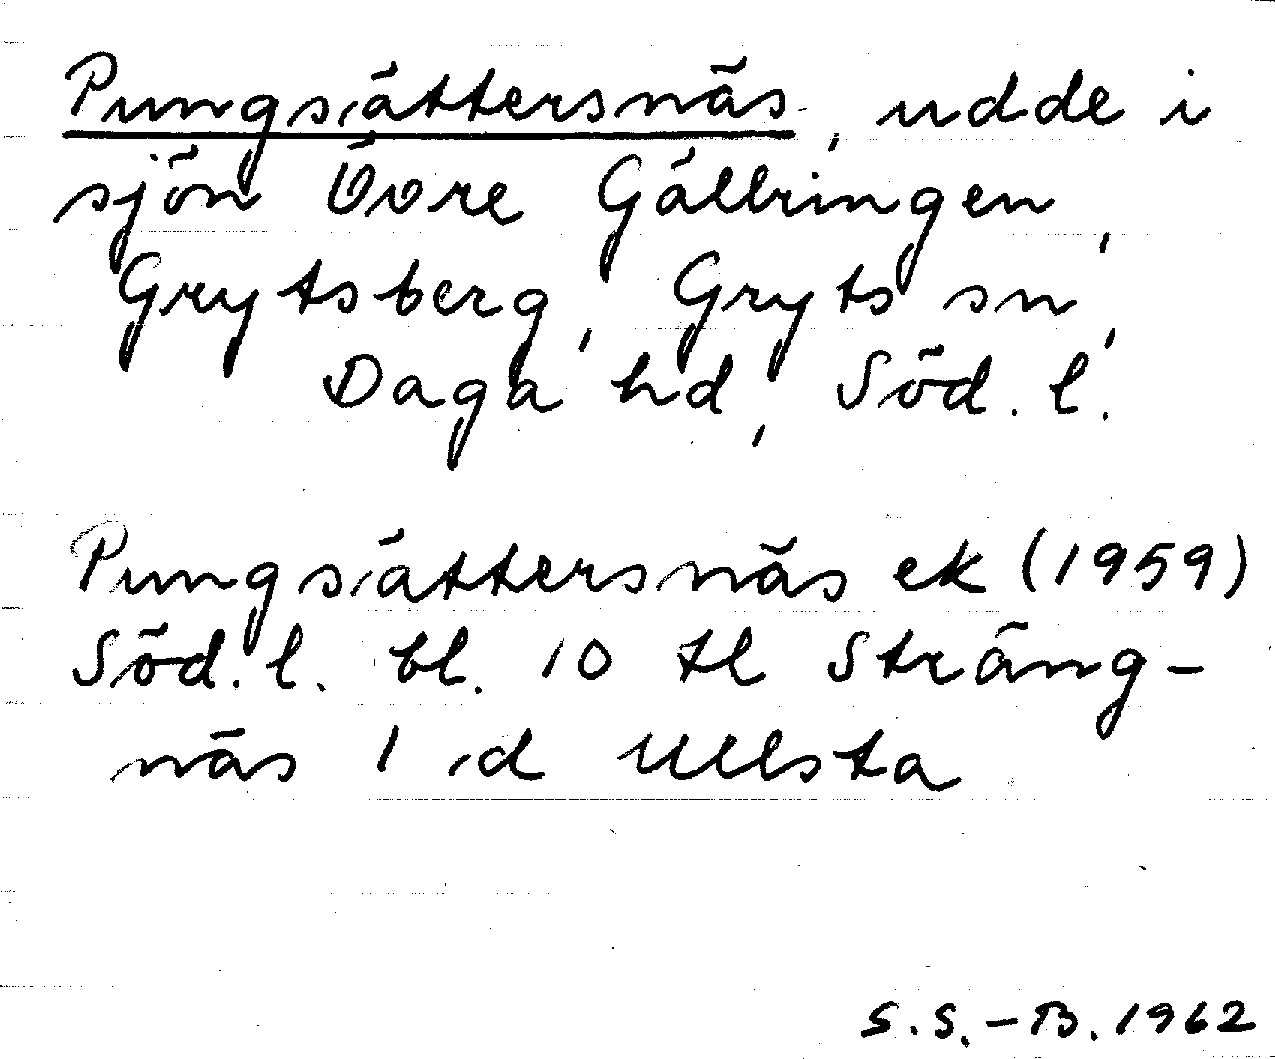 Pungsättersnäs, udde i
sjön Övre Gällringen,
Grytsberg, Gryts sn,
Daga hd, Söd. l.
Pungsättersnäs ek (1959)
Söd. l. bl. 10 tl Sträng-
näs 1 d Ullsta
S.S.-B. 1962